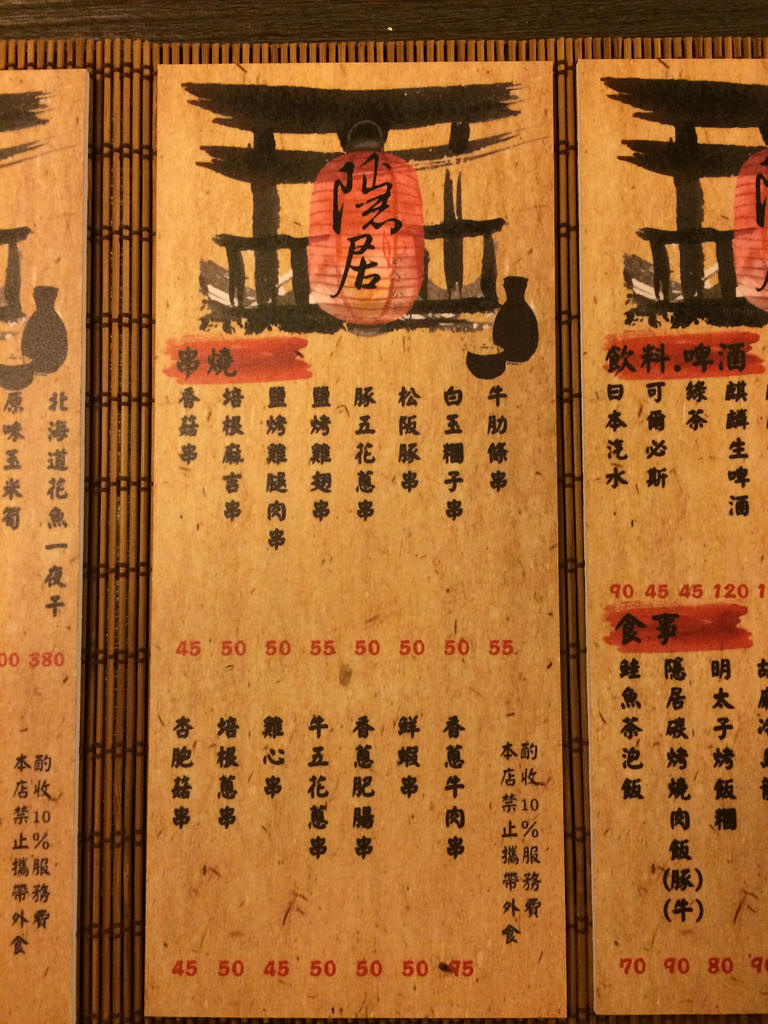 北海道花魚一夜干
380
原味玉米筍
酌收10%服務費
本店禁止攜帶外食
隱居
串燒
牛肋條串
白玉糰子串
松阪豚串
豚五花蔥串
鹽烤雞翅串
鹽烤雞腿肉串
培根麻吉串
香菇串
45 50 50 55 50 50 50 55
香蔥牛肉串
鮮蝦串
香蔥肥腸串
牛五花蔥串
雞心串
培根蔥串
杏胞菇串
45 50 45 50 50 50 95
酌收10%服務費
本店禁止攜帶外食
飲料.啤酒
麒麟生啤酒
綠茶
可爾必斯
日本汽水
90 45 45 120
食事
明太子烤飯糰
隱居碳烤燒肉飯(豚)(牛)
鮭魚茶泡飯
70 90 80